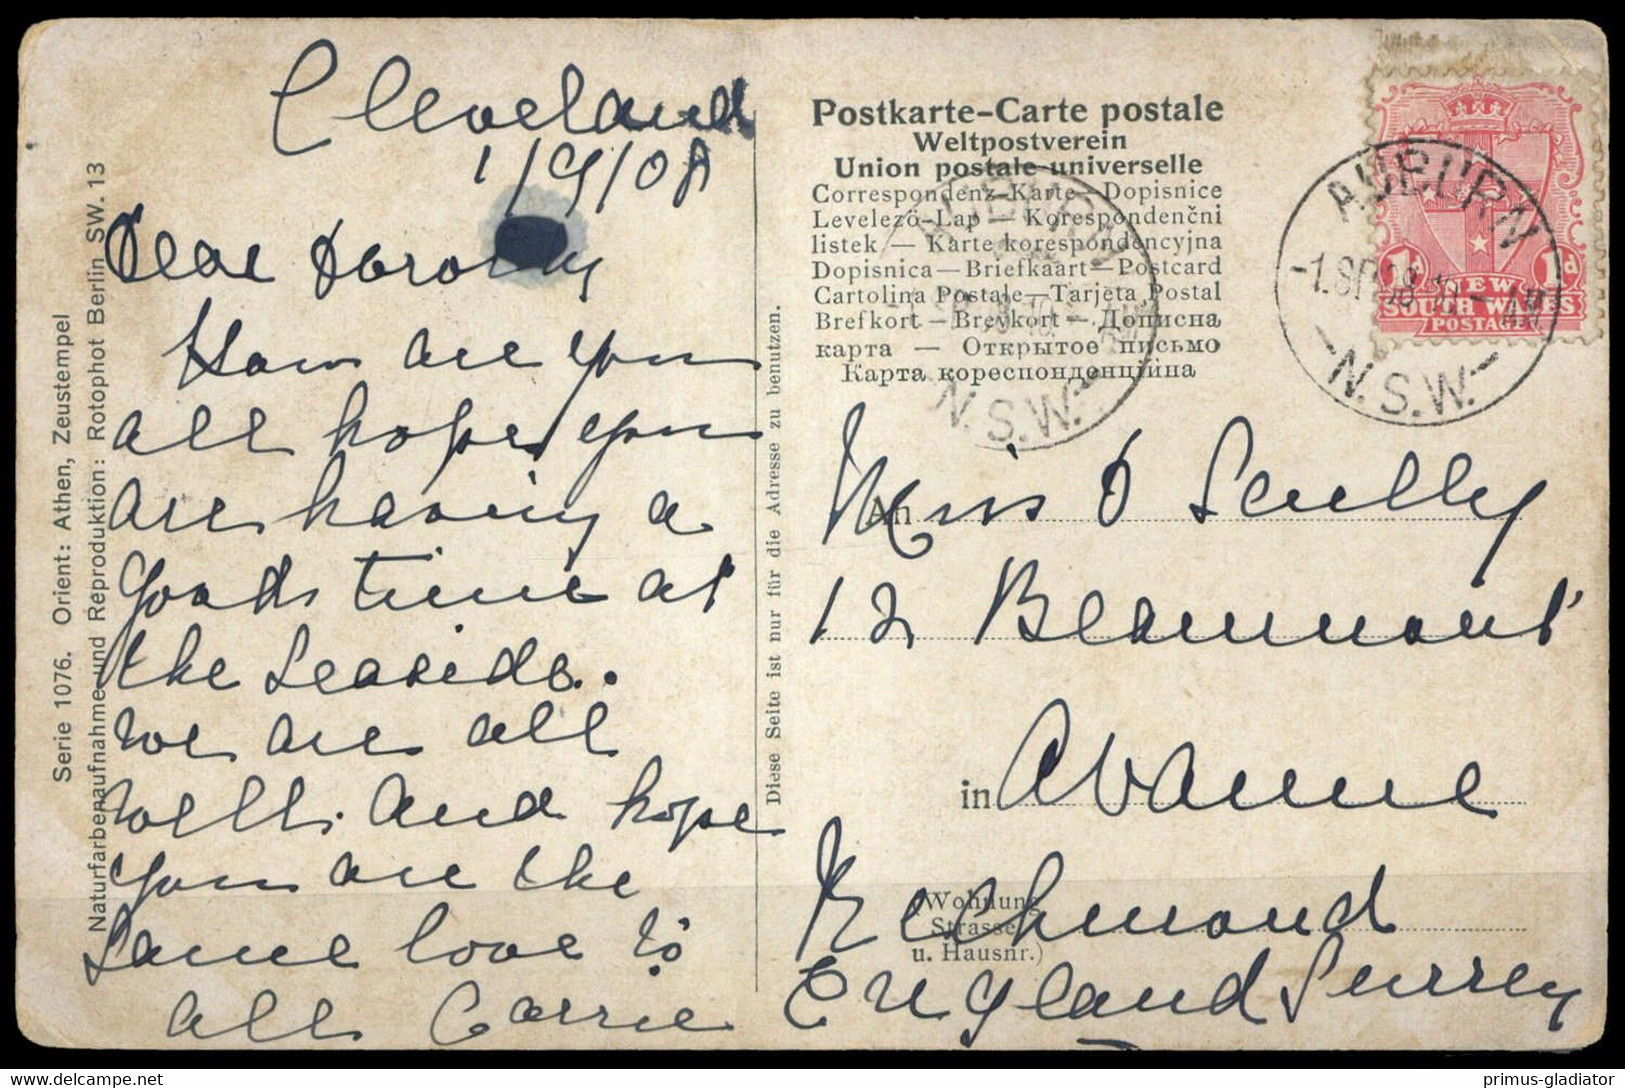 Cleveland
1/9/08
Dear Dorothy
How are you
all hope you
are having a
good time at
the Seaside.
we are all
well. and hope
you are the
Same love to
all Carrie
Serie 1076. Orient: Athen, Zeustempel
Naturfarbenaufnahme und Reproduktion: Rotophot Berlin SW. 13
Diese Seite ist nur für die Adresse zu benutzen.
Postkarte-Carte postale
Weltpostverein
Union postale universelle
Correspondenz-Karte—Dopisnice
Levelező-Lap — Korespondenčni
listek — Karte korespondencyjna
Dopisnica—Briefkaart—Postcard
Cartolina Postale—Tarjeta Postal
Brefkort—Brevkort—Дописна
карта — Открытое письмо
Карта кореспонденційна
AUBURN
N.S.W.
AUBURN
-1.SP.08 10-AM
N.S.W.
1d 1d
NEW
SOUTH WALES
POSTAGE
An Miss D Scully
12 Beaumont
in Avenue
Richmond
(Wohnung
Strasse
u. Hausnr.)
England Surrey
primus-gladiator